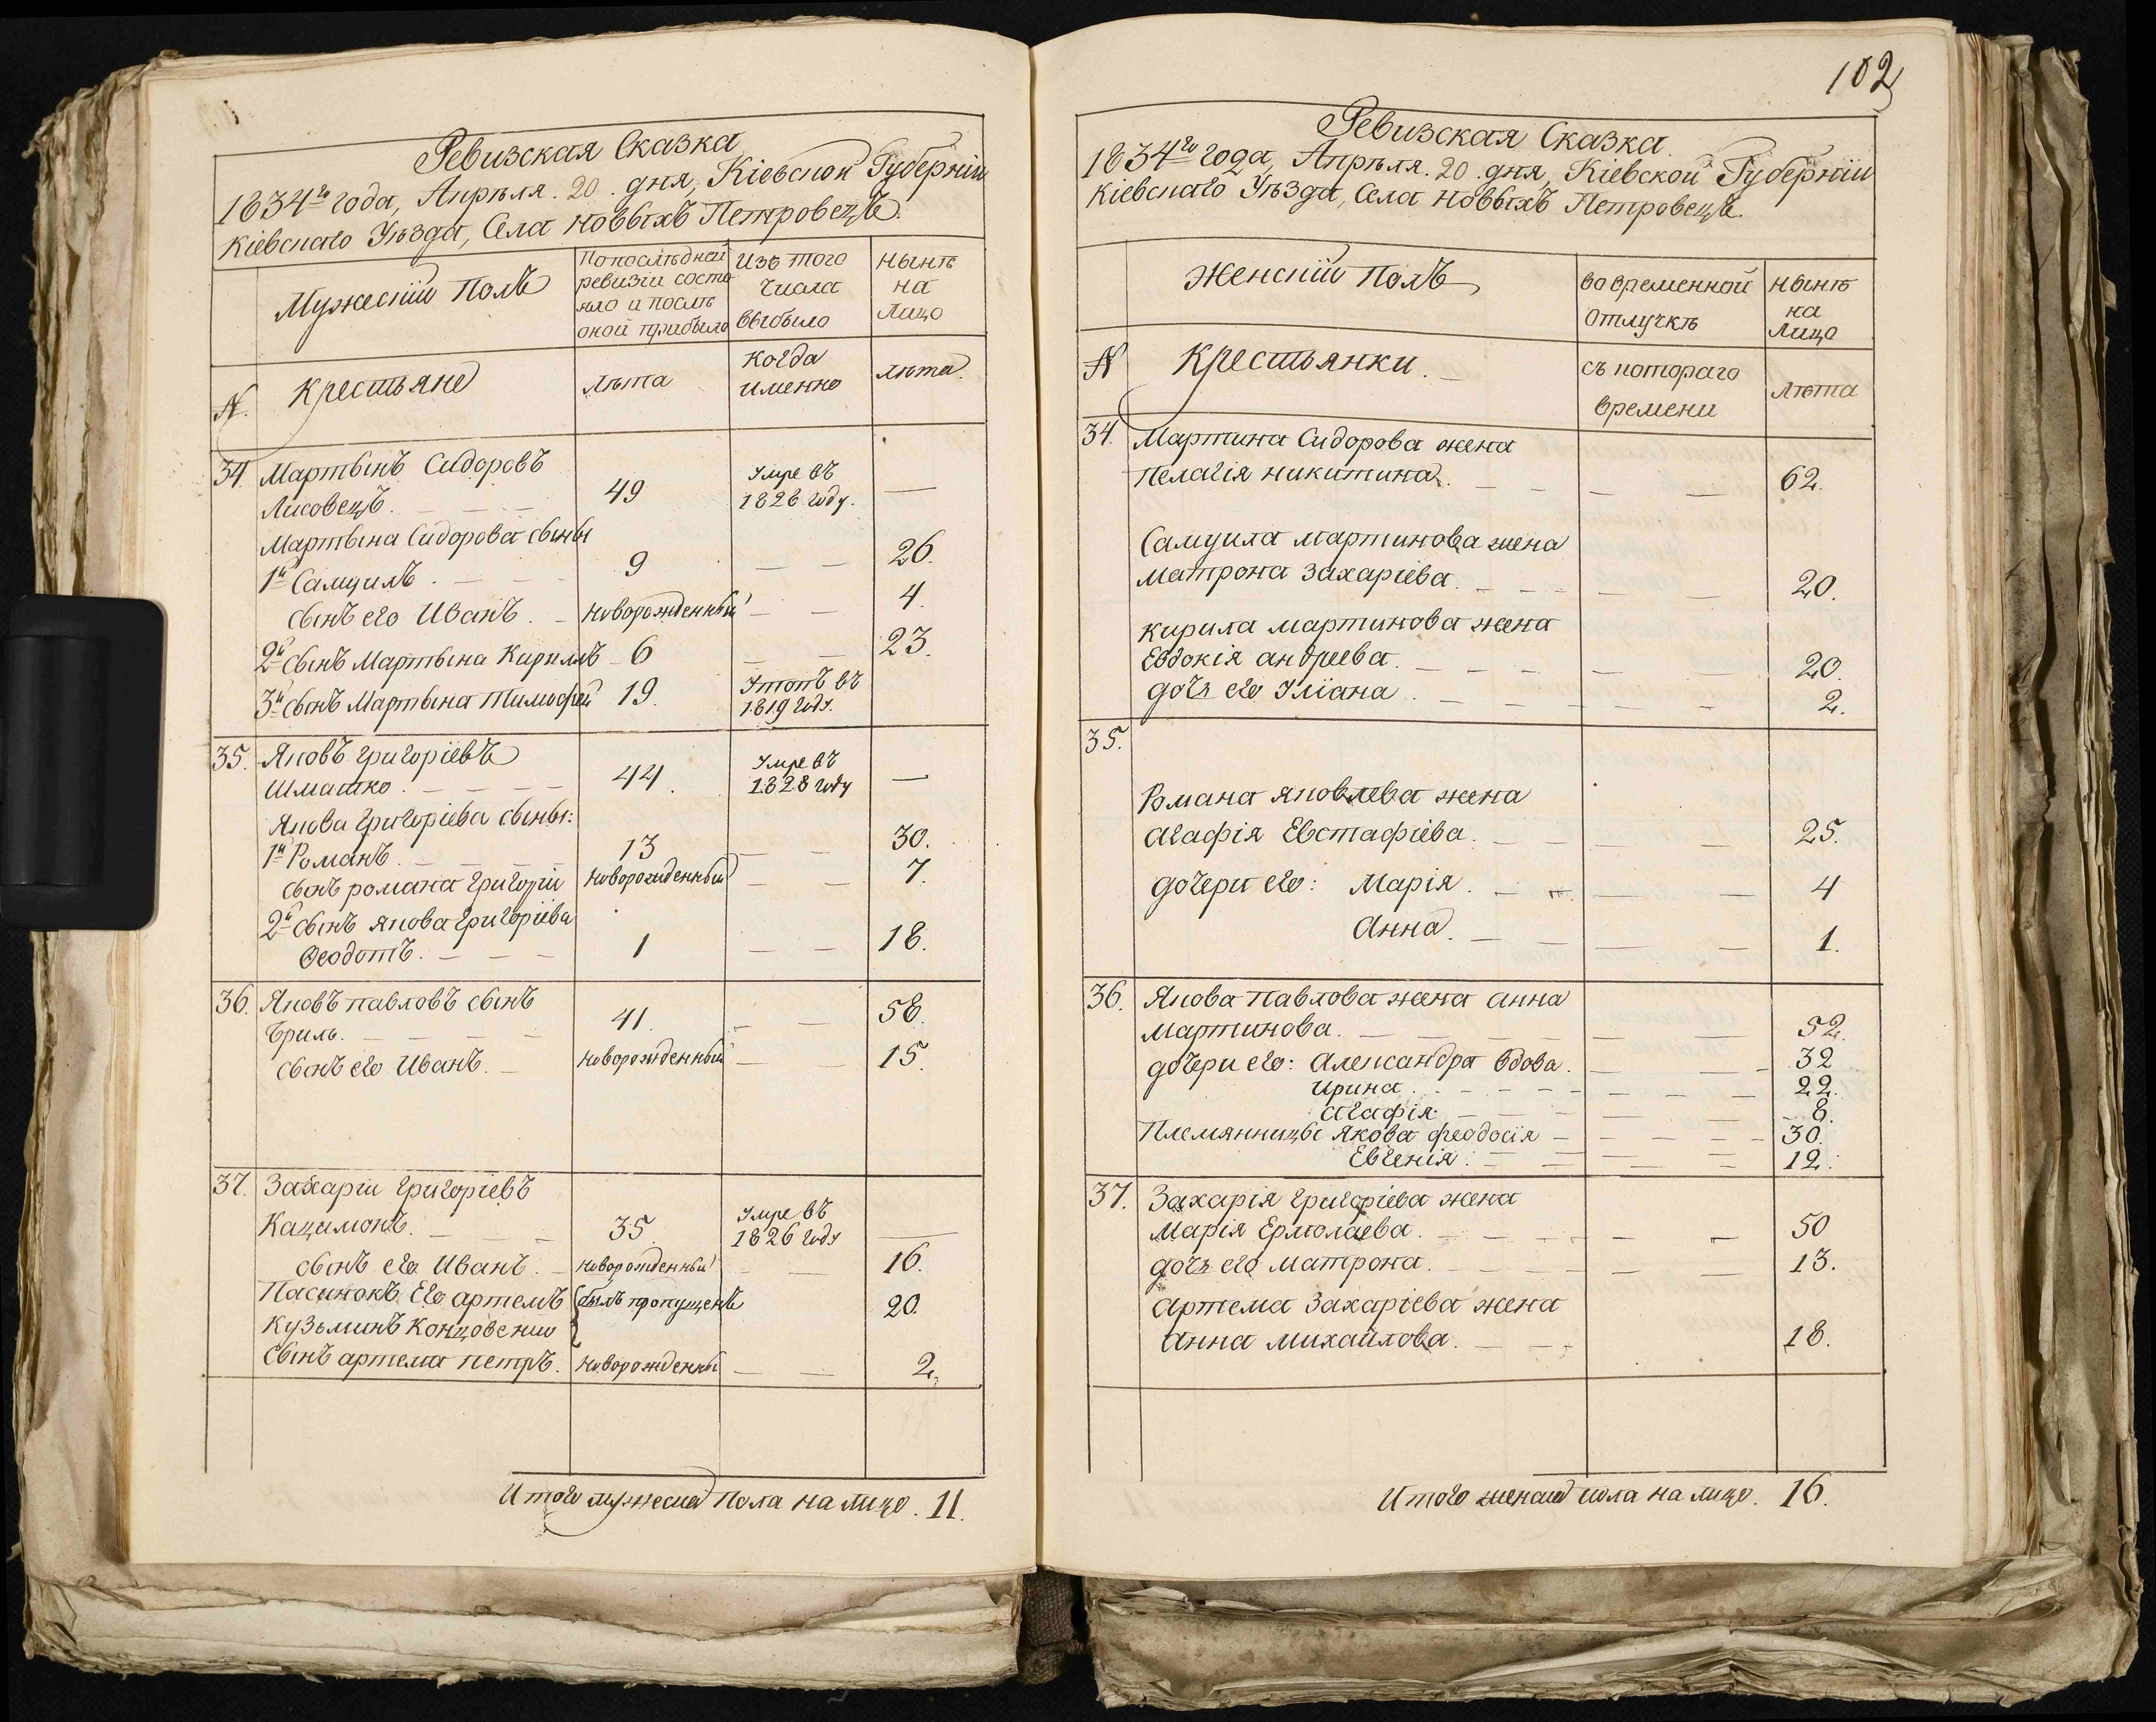 Ревизская Сказка
1834го года, Апрѣля. 20. дня, Кіевской Губерніи
Кіевскаго Уѣзда, Села новвыхъ Петровецъ.
Мужескій Полъ
По послѣдней
ревизіи состо
яло и послѣ
оной прибыло
Изъ того
числа
выбыло
Нынѣ
на
Лицо
№.
Крестьяне
лѣта
когда
именно
лѣта.
34. Мартынъ Сидоровъ
Лисовецъ. 49 Умре въ 1826 году. —
Мартына Сидорова сыны
1й Самуилъ. 9 — — 26.
сынъ его Иванъ. новорожденный — — 4.
2й сынъ Мартына Кирилъ 6 — — 23.
3й сынъ Мартына Тимофей 19. Утопъ въ 1819 годѵ.
35. Яковъ Григоріевъ
Шмашко. 44. Умре въ 1828 году —
Якова Григоріева сыны:
1й Романъ. 13 — — 30.
сынъ романа Григорій новорожденный — — 7.
2й сынъ якова Григоріева
Ѳеодотъ. 1 — — 18.
36. Яковъ павловъ сынъ
Бриль. 41. — — 58.
сынъ его Иванъ. новорожденный — — 15.
37. Захарій Григоріевъ
Кацимонъ. 35 Умре въ 1826 годѵ —
сынъ его Иванъ. новорожденный — — 16.
Пасинокъ Его артемъ былъ пропущенъ 20.
Кузьминъ
Сынъ артема петръ. новорожденный — — 2.
Итого мужеска Пола на лицо. 11.
102
Ревизская Сказка
1834го года, Апрѣля. 20. дня, Кіевской Губерніи
Кіевскаго Уѣзда, Села новвыхъ Петровецъ.
Женскій Полъ
во временной
отлучкѣ
нынѣ
на
Лицо
№
Крестьянки.
съ котораго
времени
Лѣта
34. Мартина Сидорова жена
Пелагія никитина. — — 62.
Самуила мартинова жена
матрона Захаріева. — — 20.
кирила мартинова жена
Евдокія андреева. — — 20.
дочь его Уліана. — — 2.
35.
Романа яковлева жена
агафія Евстафіева. — — 25.
дочери его: Марія. — — 4
Анна. — — 1.
36. Якова павлова жена анна
мартинова. — — 52.
дочери его: александра вдова. — — 32
Ирина. — — 22.
агафія. — — 8.
Племянницы Якова феодосія — — 30.
Евгенія. — — 12.
37. Захарія григоріева жена
Марія Ермолаева. — — 50
дочь его матрона. — — 13.
артема Захаріева жена
анна михайлова. — 18.
Итого женска пола на лицо. 16.